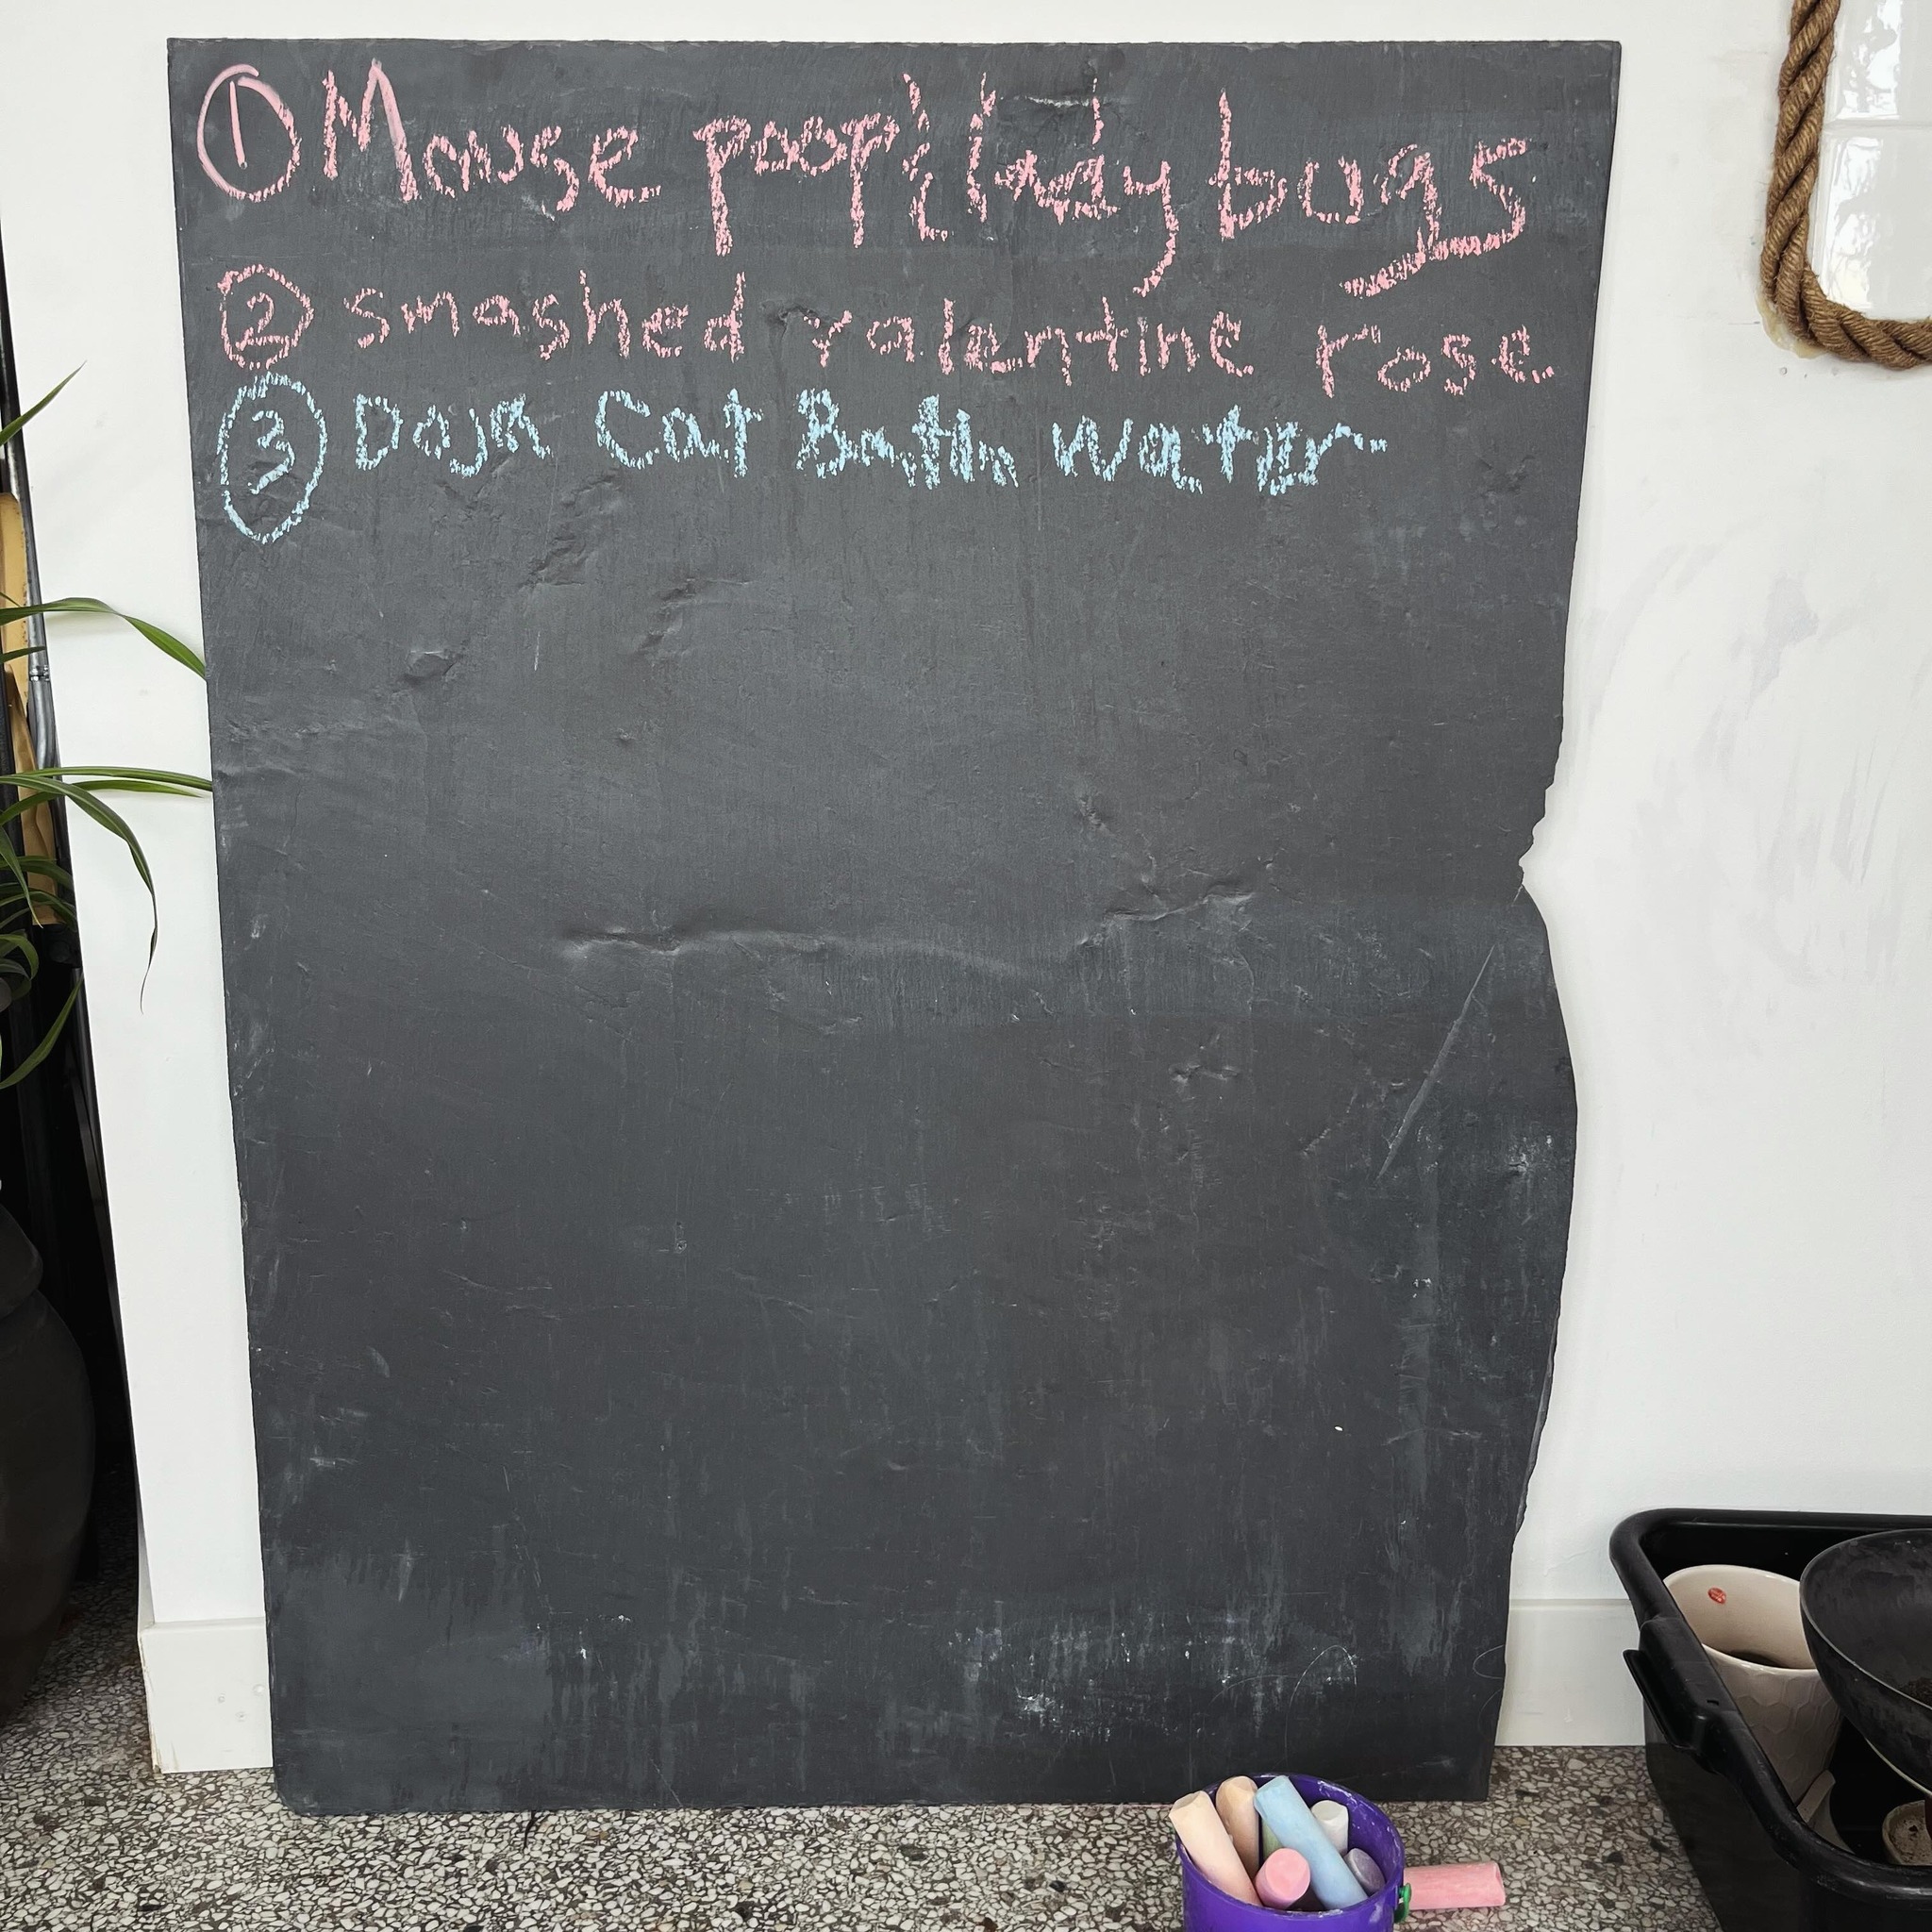 ① Mouse poop & ladybugs
② smashed valentine rose
③ Doja Cat Bath Water